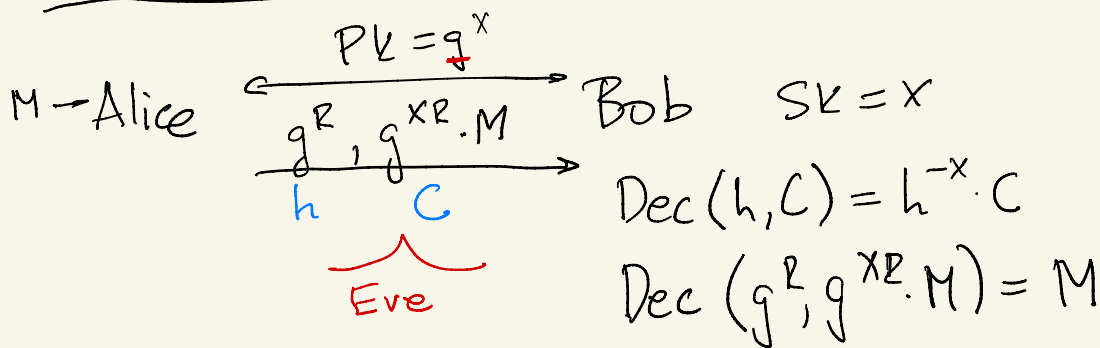 Pk = g^x
M → Alice
Bob Sk = x
g^R, g^{XR}·M
h C
Dec(h, C) = h^{-x}·C
Eve
Dec(g^R, g^{XR}·M) = M